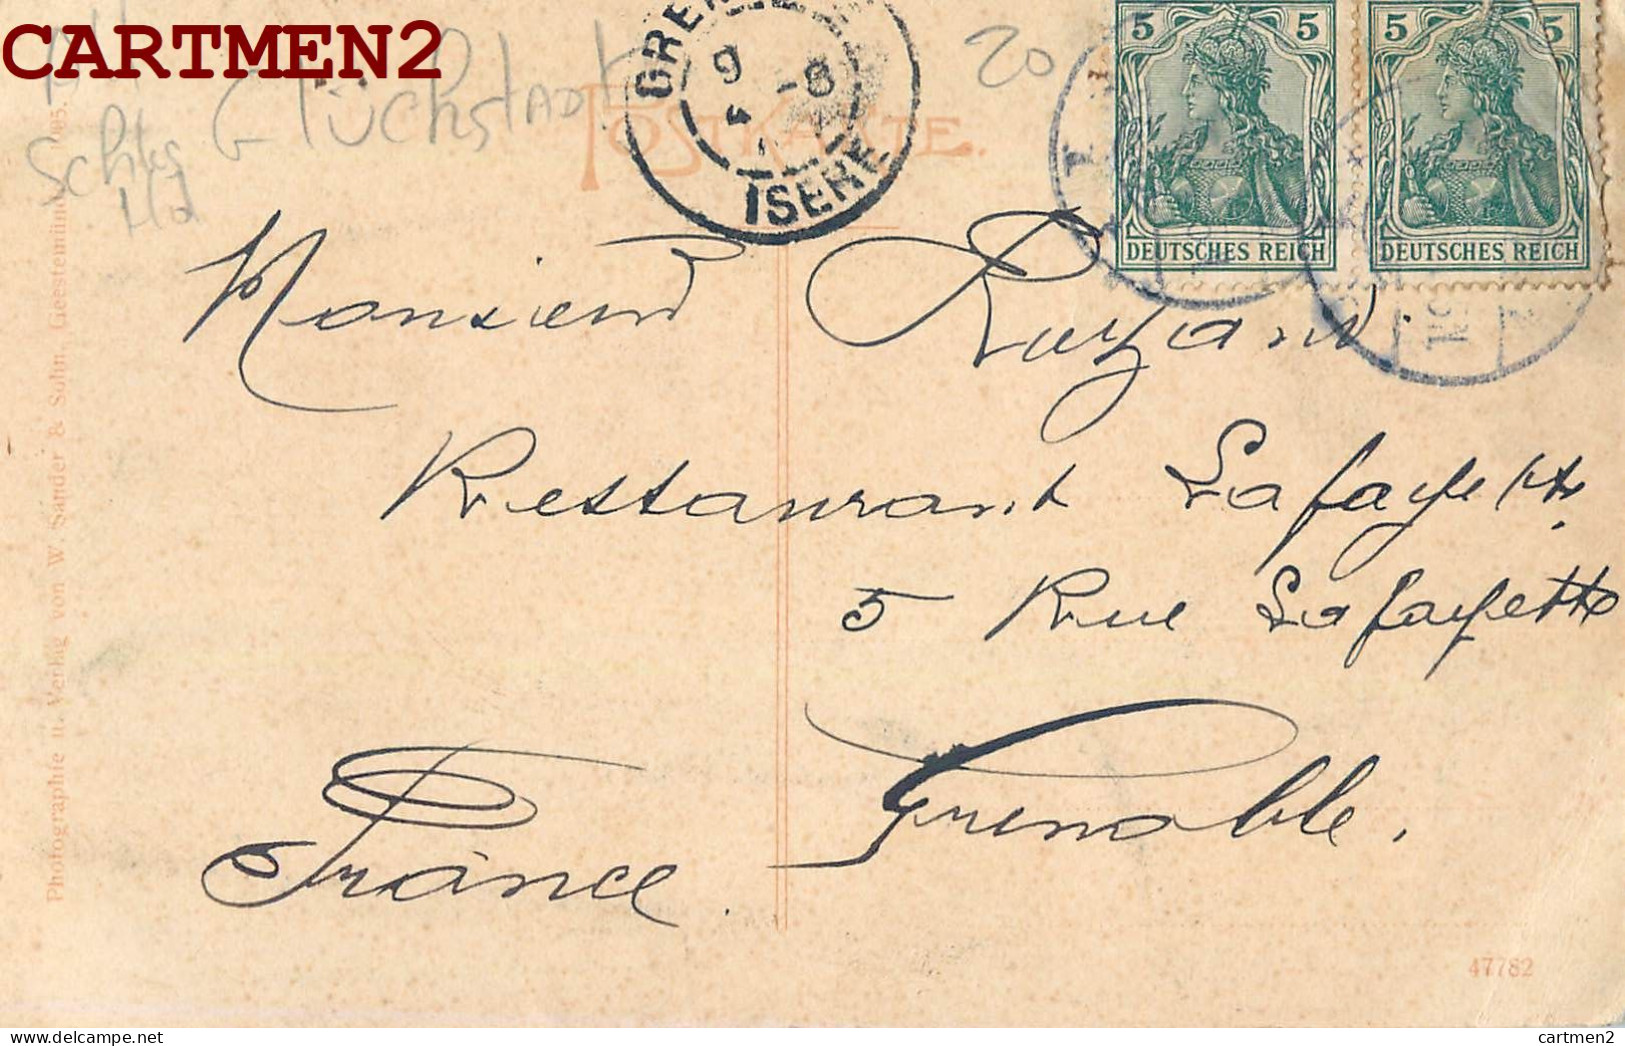 CARTMEN2
Glückstadt
Schles
Hd
20
POSTKARTE.
GRE
9 -8
ISERE
5 5
DEUTSCHES REICH
5 5
DEUTSCHES REICH
Monsieur
Restaurant Lafayette
5 Rue Lafayette
Grenoble.
France.
Photographie u. Verlag von W. Sander & Sohn, Geestemünde
47782
cartmen2